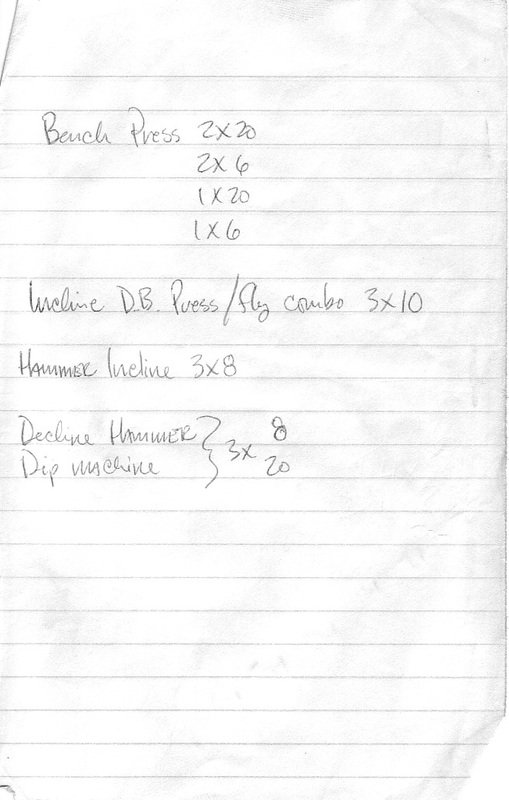 Bench Press 2x20
2x6
1x20
1x6
Incline D.B. Press/fly combo 3x10
HAMMER Incline 3x8
Decline HAMMER } 3x 8
Dip machine 20